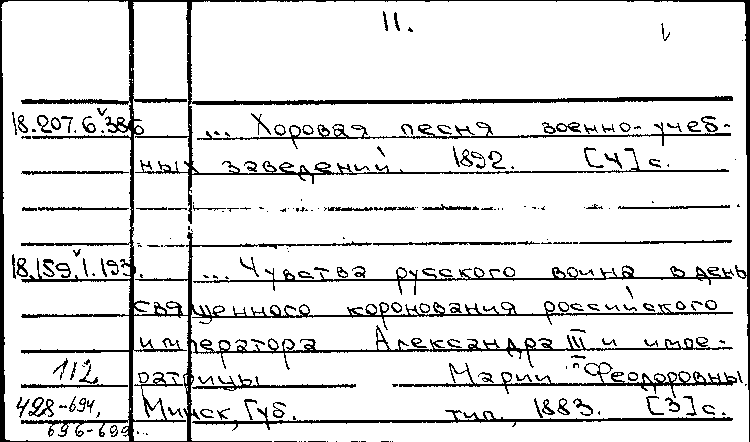 11.
18.207.6.386 ... Хоровая песня военно-учеб-
ных заведений. 1892. [4] с.
18.159.1.193. ... Чувства русского воина в день
священного коронования российского
императора Александра III и импе-
112. ратрицы Марии Феодоровны
428-694, Минск, Губ. тип., 1883. [3] с.
696-699...